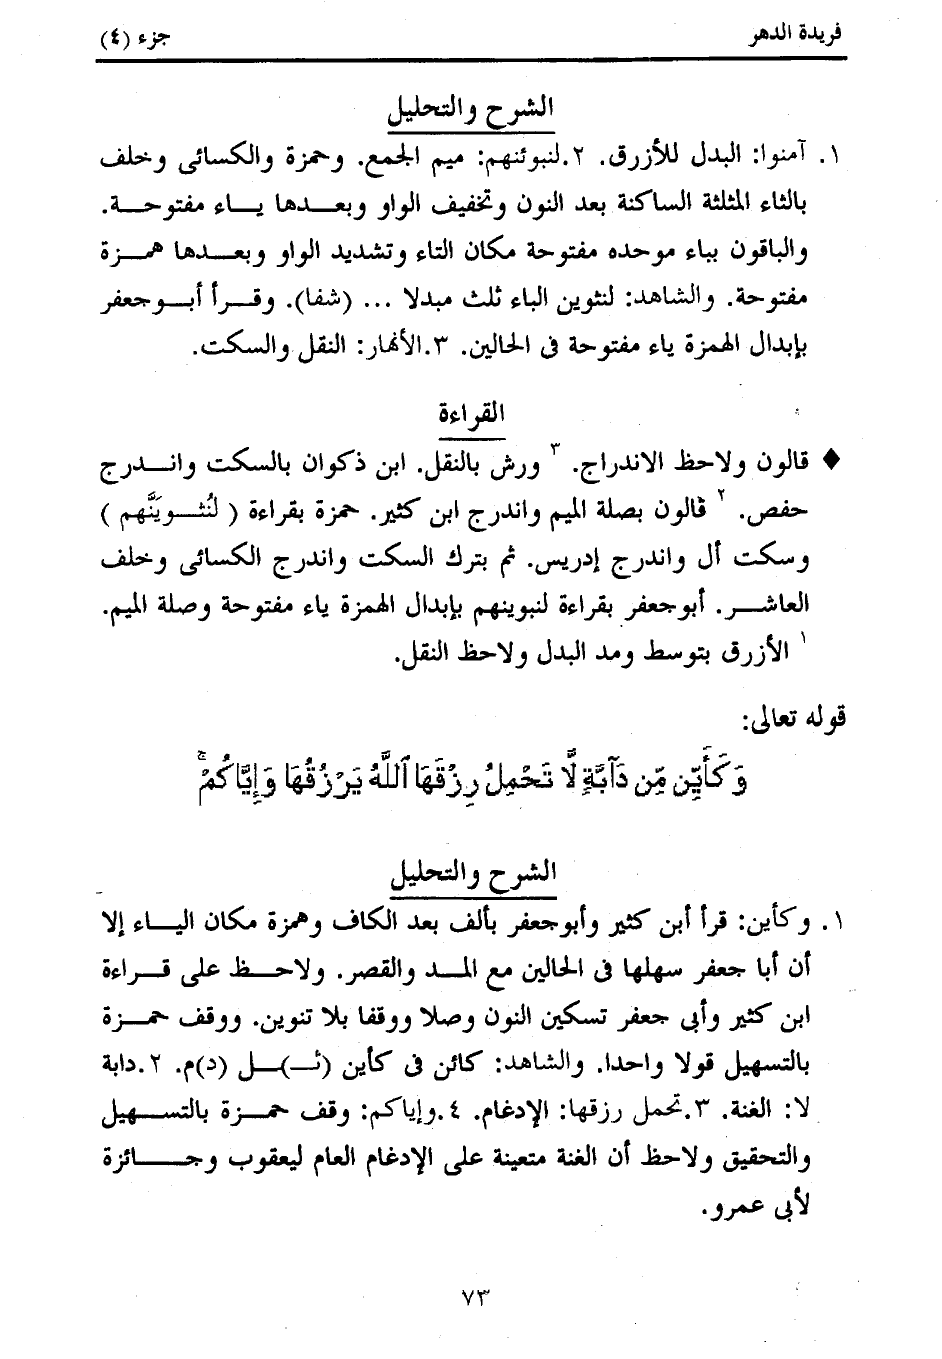 فريدة الدهر
جزء (٤)
الشرح والتحليل
١. آمنوا: البدل للأزرق. ٢.لنبوئنهم: ميم الجمع. وحمزة والكسائى وخلف
بالثاء المثلثة الساكنة بعد النون وتخفيف الواو وبعدها ياء مفتوحة.
والباقون بباء موحده مفتوحة مكان الثاء وتشديد الواو وبعدها همزة
مفتوحة. والشاهد: لنثوين الباء ثلث مبدلا ... (شفا). وقرأ أبوجعفر
بإبدال الهمزة ياء مفتوحة فى الحالين. ٣.الأنهار: النقل والسكت.
القراءة
♦ قالون ولاحظ الاندراج. ٣ ورش بالنقل. ابن ذكوان بالسكت واندرج
حفص. ٢ قالون بصلة الميم واندرج ابن كثير. حمزة بقراءة ( لَنُثْوِيَنَّهم )
وسكت أل واندرج إدريس. ثم بترك السكت واندرج الكسائى وخلف
العاشر. أبوجعفر بقراءة لنبوينهم بإبدال الهمزة ياء مفتوحة وصلة الميم.
١ الأزرق بتوسط ومد البدل ولاحظ النقل.
قوله تعالى:
وَكَأَيِّن مِّن دَآبَّةٍ لَّا تَحْمِلُ رِزْقَهَا ٱللَّهُ يَرْزُقُهَا وَإِيَّاكُمْ ۚ
الشرح والتحليل
١. وكأين: قرأ أبن كثير وأبوجعفر بألف بعد الكاف وهمزة مكان الياء إلا
أن أبا جعفر سهلها فى الحالين مع المد والقصر. ولاحظ على قراءة
ابن كثير وأبى جعفر تسكين النون وصلا ووقفا بلا تنوين. ووقف حمزة
بالتسهيل قولا واحدا. والشاهد: كائن فى كأين (ثـ)ـل (د)م. ٢.دابة
لا: الغنة. ٣.تحمل رزقها: الإدغام. ٤.وإياكم: وقف حمزة بالتسهيل
والتحقيق ولاحظ أن الغنة متعينة على الإدغام العام ليعقوب وجائزة
لأبى عمرو.
٧٣